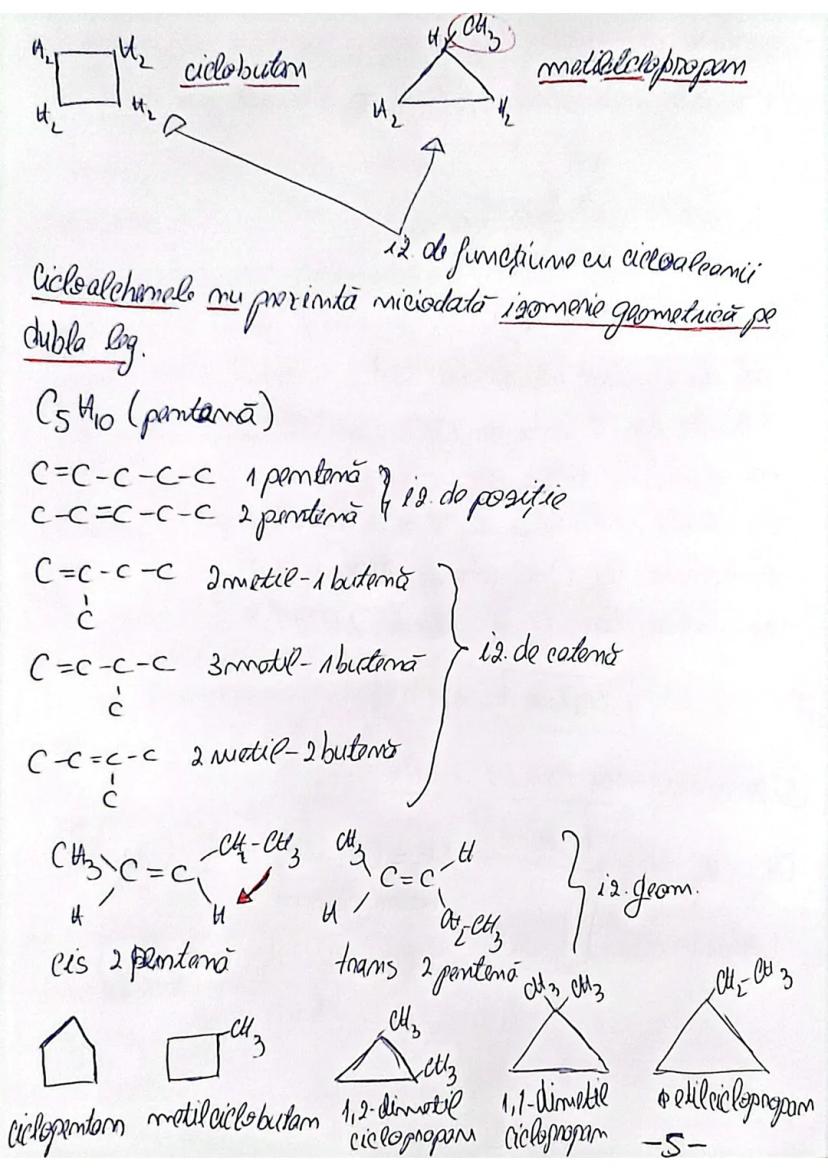 H₂ H₂ ciclobutan H CH₃ metilciclopropan
H₂ H₂ H₂ H₂
iz. de funcțiune cu cicloalcanii
Cicloalchenele nu prezintă niciodată izomerie geometrică pe
dubla leg.
C₅H₁₀ (pentenă)
C=C-C-C-C 1 pentenă } iz. de poziție
C-C=C-C-C 2 pentenă
C=C-C-C 2 metil-1 butenă
C
C=C-C-C 3 metil-1 butenă iz. de catenă
C
C-C=C-C 2 metil-2 butenă
C
CH₃ C=C CH₂-CH₃ CH₃ C=C H
H H H CH₂-CH₃ iz. geom.
cis 2 pentenă trans 2 pentenă
CH₃ CH₃ CH₃ CH₂-CH₃
CH₃ CH₃
ciclopentan metilciclobutan 1,2-dimetil ciclopropan 1,1-dimetil ciclopropan etilciclopropan
-5-